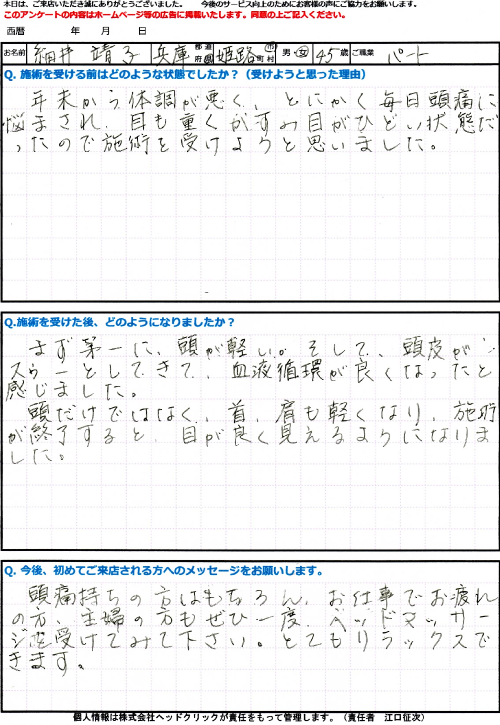 本日は、ご来店いただき誠にありがとうございました。　今後のサービス向上のためにお客様の声にご協力をお願いします。
このアンケートの内容はホームページ等の広告に掲載いたします。同意の上ご記入ください。
西暦　年　月　日
お名前 細井 靖子 兵庫 都道府県 姫路 市町村 男・女 45歳 ご職業 パート
Q. 施術を受ける前はどのような状態でしたか？（受けようと思った理由）
年末から体調が悪く、とにかく毎日頭痛に
悩まされ、目も重くかすみ目がひどい状態だ
ったので施術を受けようと思いました。
Q.施術を受けた後、どのようになりましたか？
まず第一に、頭が軽い。そして、頭皮が
スゥーとしてきて、血液循環が良くなったと
感じました。
頭だけではなく、首、肩も軽くなり、施術
が終了すると、目が良く見えるようになりま
した。
Q. 今後、初めてご来店される方へのメッセージをお願いします。
頭痛持ちの方はもちろん、お仕事でお疲れ
の方、主婦の方もぜひ一度、ヘッドマッサー
ジを受けてみて下さい。とてもリラックスで
きます。
個人情報は株式会社ヘッドクリックが責任をもって管理します。（責任者　江口征次）